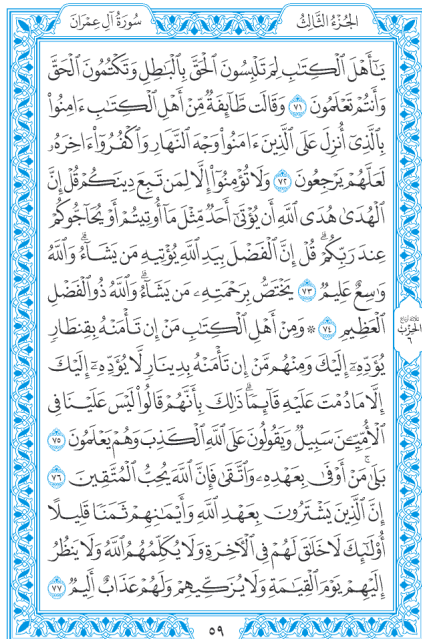 الجُزْءُ الثَّالِثُ
سُورَةُ آلِ عِمْرَانَ
يَٰٓأَهْلَ ٱلْكِتَٰبِ لِمَ تَلْبِسُونَ ٱلْحَقَّ بِٱلْبَٰطِلِ وَتَكْتُمُونَ ٱلْحَقَّ
وَأَنتُمْ تَعْلَمُونَ ٧١ وَقَالَت طَّآئِفَةٌ مِّنْ أَهْلِ ٱلْكِتَٰبِ ءَامِنُوا۟
بِٱلَّذِىٓ أُنزِلَ عَلَى ٱلَّذِينَ ءَامَنُوا۟ وَجْهَ ٱلنَّهَارِ وَٱكْفُرُوٓا۟ ءَاخِرَهُۥ
لَعَلَّهُمْ يَرْجِعُونَ ٧٢ وَلَا تُؤْمِنُوٓا۟ إِلَّا لِمَن تَبِعَ دِينَكُمْ قُلْ إِنَّ
ٱلْهُدَىٰ هُدَى ٱللَّهِ أَن يُؤْتَىٰٓ أَحَدٌ مِّثْلَ مَآ أُوتِيتُمْ أَوْ يُحَآجُّوكُمْ
عِندَ رَبِّكُمْ ۗ قُلْ إِنَّ ٱلْفَضْلَ بِيَدِ ٱللَّهِ يُؤْتِيهِ مَن يَشَآءُ ۗ وَٱللَّهُ
وَٰسِعٌ عَلِيمٌ ٧٣ يَخْتَصُّ بِرَحْمَتِهِۦ مَن يَشَآءُ ۗ وَٱللَّهُ ذُو ٱلْفَضْلِ
ٱلْعَظِيمِ ٧٤ ۞ وَمِنْ أَهْلِ ٱلْكِتَٰبِ مَنْ إِن تَأْمَنْهُ بِقِنطَارٍ
يُؤَدِّهِۦٓ إِلَيْكَ وَمِنْهُم مَّنْ إِن تَأْمَنْهُ بِدِينَارٍ لَّا يُؤَدِّهِۦٓ إِلَيْكَ
إِلَّا مَا دُمْتَ عَلَيْهِ قَآئِمًا ۗ ذَٰلِكَ بِأَنَّهُمْ قَالُوا۟ لَيْسَ عَلَيْنَا فِى
ٱلْأُمِّيِّـۧنَ سَبِيلٌ وَيَقُولُونَ عَلَى ٱللَّهِ ٱلْكَذِبَ وَهُمْ يَعْلَمُونَ ٧٥
بَلَىٰ ۚ مَنْ أَوْفَىٰ بِعَهْدِهِۦ وَٱتَّقَىٰ فَإِنَّ ٱللَّهَ يُحِبُّ ٱلْمُتَّقِينَ ٧٦
إِنَّ ٱلَّذِينَ يَشْتَرُونَ بِعَهْدِ ٱللَّهِ وَأَيْمَٰنِهِمْ ثَمَنًا قَلِيلًا
أُو۟لَٰٓئِكَ لَا خَلَٰقَ لَهُمْ فِى ٱلْءَاخِرَةِ وَلَا يُكَلِّمُهُمُ ٱللَّهُ وَلَا يَنظُرُ
إِلَيْهِمْ يَوْمَ ٱلْقِيَٰمَةِ وَلَا يُزَكِّيهِمْ وَلَهُمْ عَذَابٌ أَلِيمٌ ٧٧
الحِزْبُ
٦
٥٩